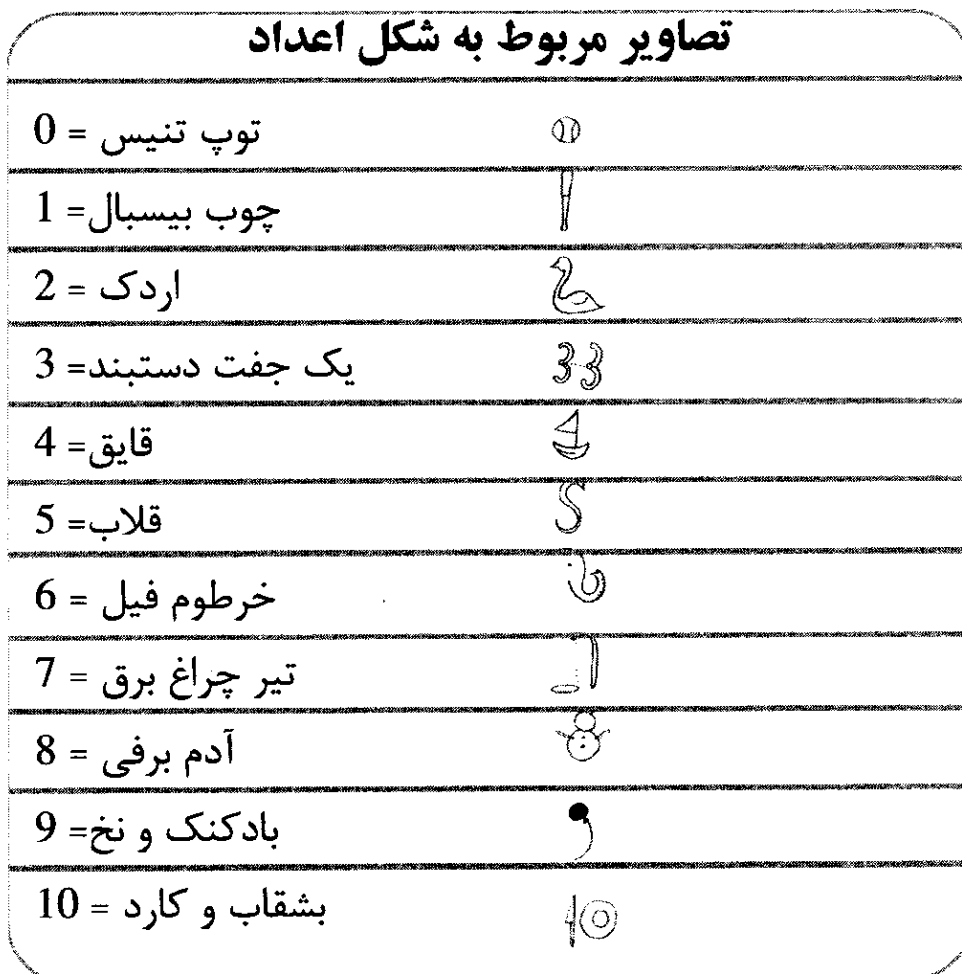 تصاویر مربوط به شکل اعداد
توپ تنیس = 0
چوب بیسبال= 1
اردک = 2
یک جفت دستبند= 3
قایق= 4
قلاب= 5
خرطوم فیل = 6
تیر چراغ برق = 7
آدم برفی = 8
بادکنک و نخ= 9
بشقاب و کارد = 10